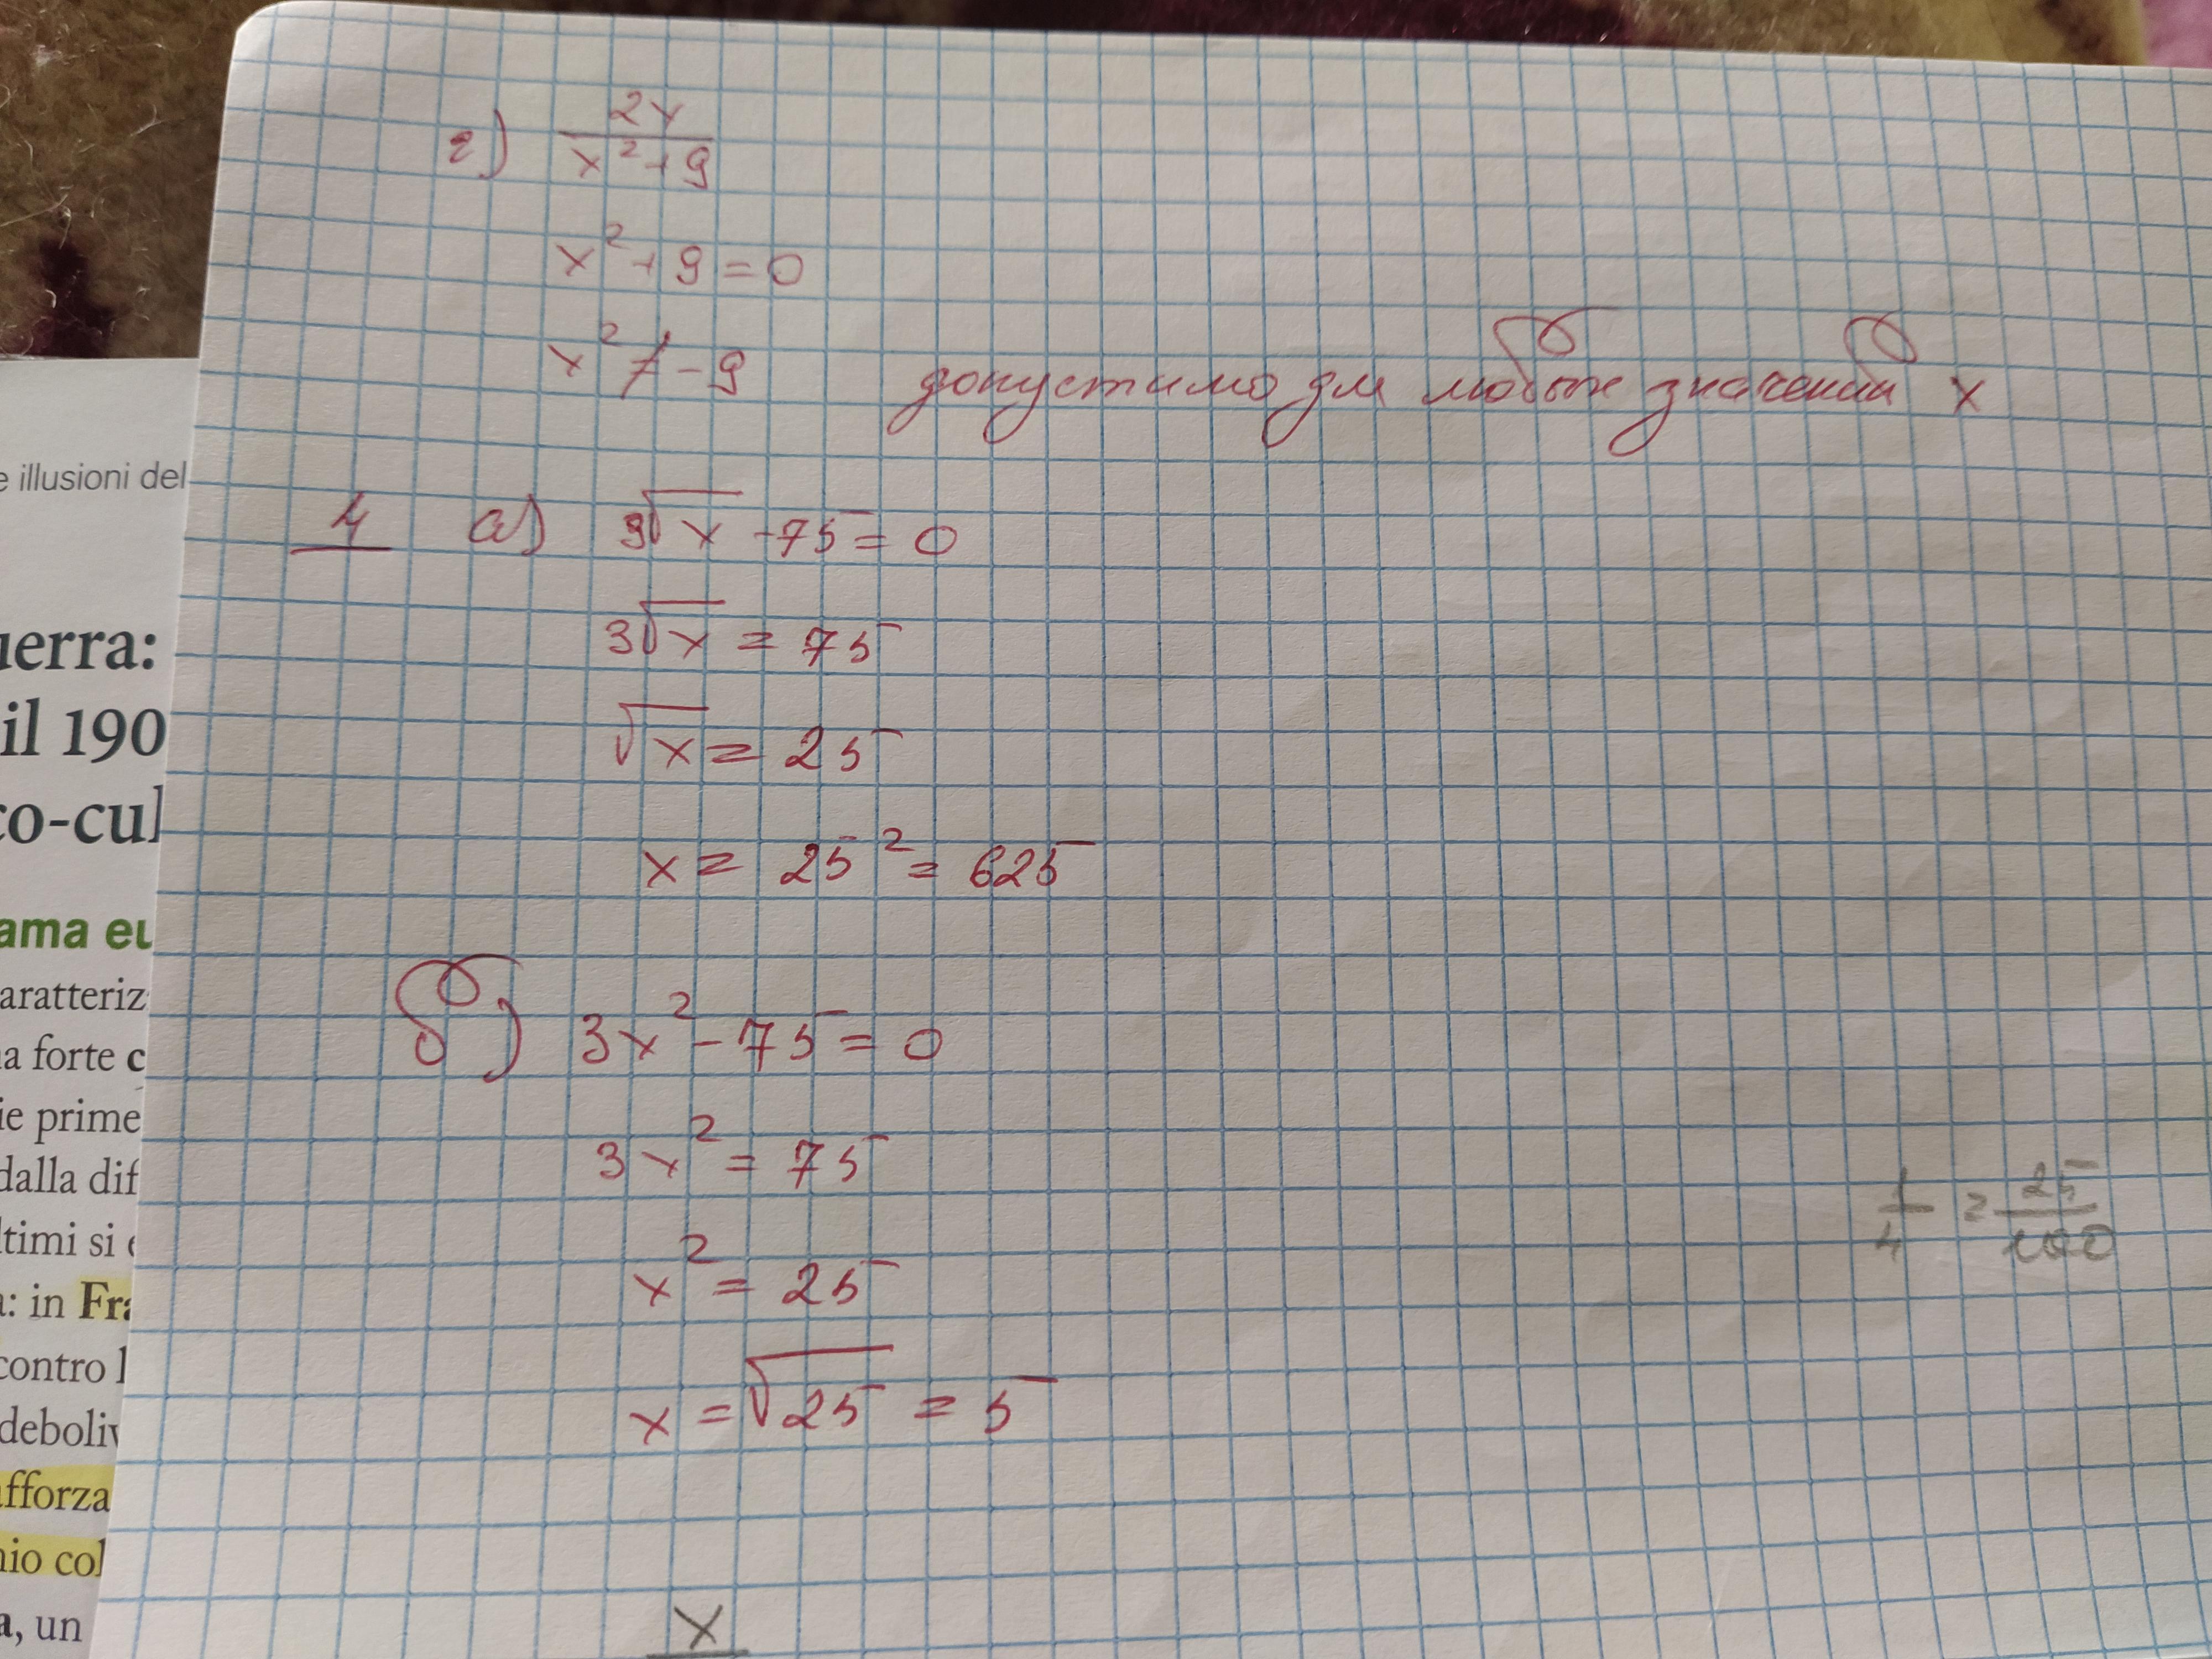 г) 2x
x² + 9
x² + 9 = 0
x² ≠ - 9 допустимо для любых значений x
4 а) 3√x - 75 = 0
3√x = 75
√x = 25
x = 25² = 625
б) 3x² - 75 = 0
3x² = 75
x² = 25
x = √25 = 5
1/4 = 25/100
x
e illusioni del
uerra:
il 190
co-cul
ama eu
aratteriz
na forte c
ie prime
dalla dif
ltimi si e
a: in Fra
contro l
deboliv
afforza
nio col
a, un